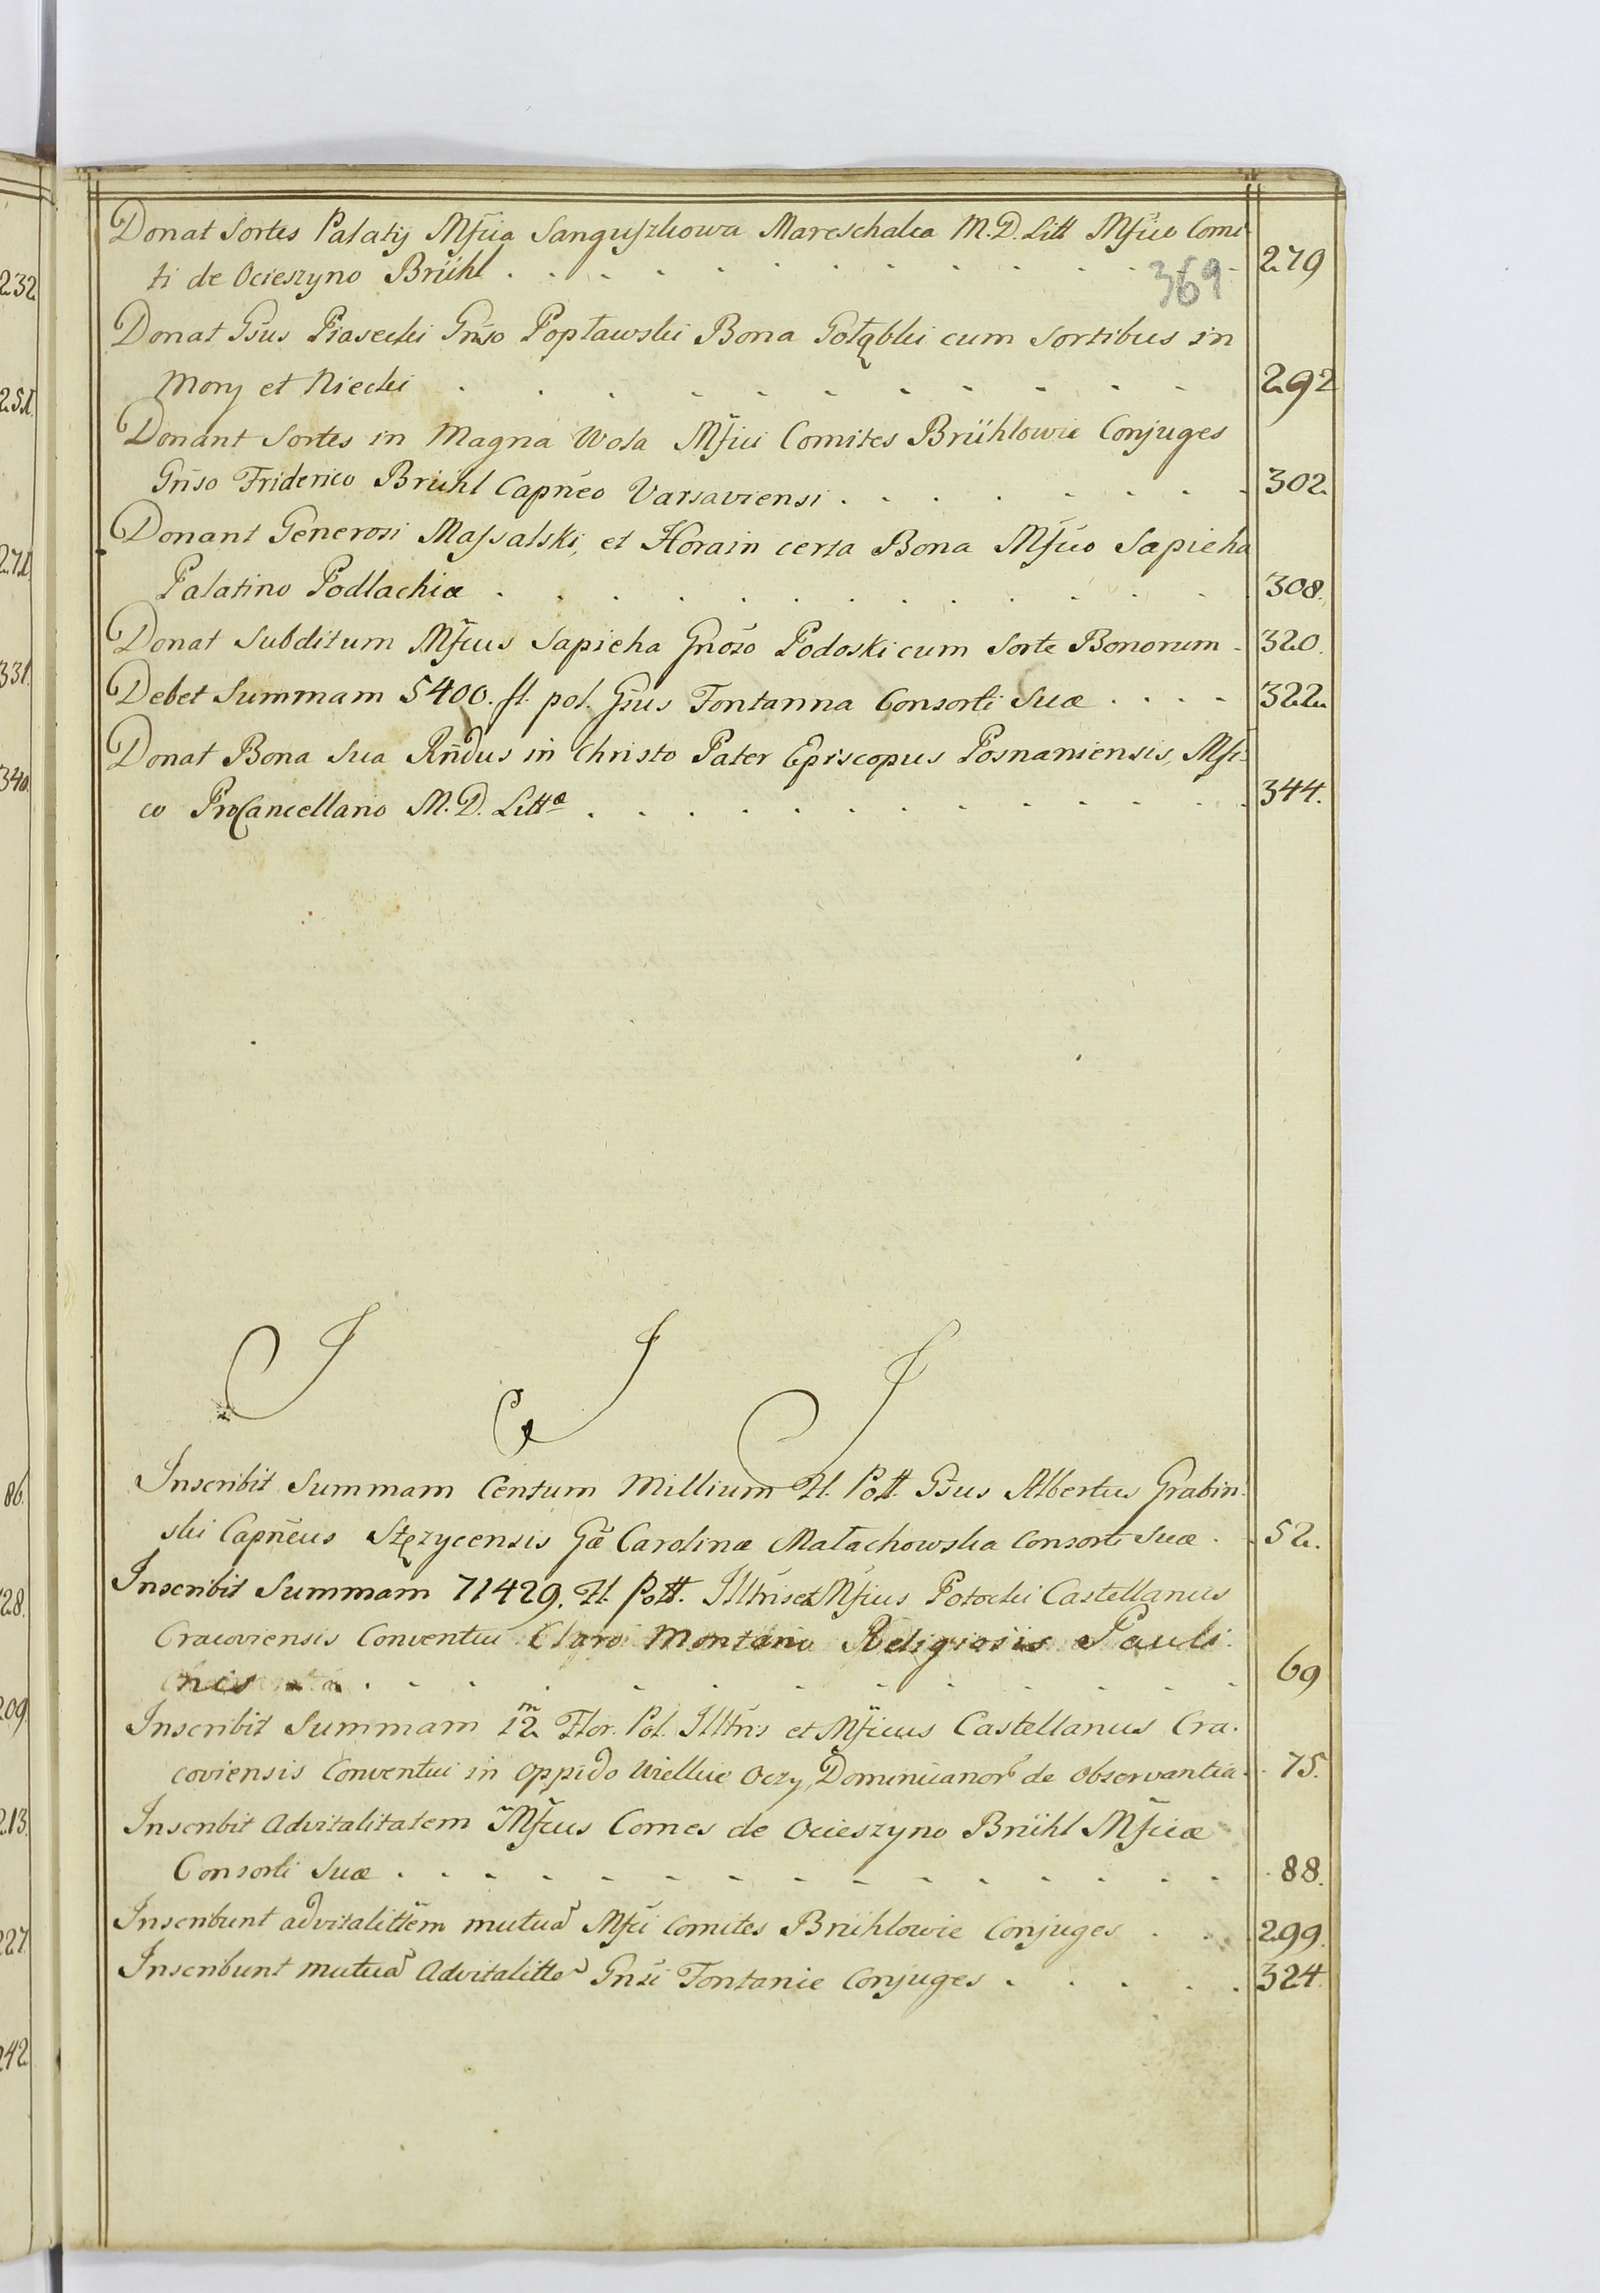 232
251.
271.
331.
340.
86.
128.
209
213.
227
242
Donat Sortes Palatij Mfica Sanguszkowa Mareschalca M.D. Litt Mfico Comi
ti de Ocieszyno Brühl . . . . . . . . . . . . 279
369
Donat Gsus Piasecki Gnso Popławski Bona Gołąbki cum Sortibus in
Mory et Niecki . . . . . . . . . . . . 292
Donant Sortes in Magna Wola Mfici Comites Brühlowie Conjuges
Gnso Friderico Brühl Capneo Varsaviensi . . . . . . . . 302.
Donant Generosi Massalski, et Horain certa Bona Mfico Sapieha
Palatino Podlachiæ . . . . . . . . . . . . 308.
Donat Subditum Mficus Sapieha Gnoso Podoski cum Sorte Bonorum . 320.
Debet Summam 5400. fl. pol. Gsus Fontanna Consorti Suæ . . . . 322.
Donat Bona Sua Rndus in Christo Pater Episcopus Posnaniensis, Mfi
co ProCancellario M. D. Littæ . . . . . . . . . . . . 344.
J J J
Inscribit Summam Centum Millium Fl. Poll. Gsus Albertus Grabin
ski Capneus Stęzycensis Gæ Carolinæ Małachowska Consorti Suæ . . 52.
Inscribit Summam 71429. Fl. Poll. Illtris et Mficus Potocki Castellanus
Cracoviensis Conventui Claro Montano Religiosis Pauli
nis . . . . . . . . . . . . 69
Inscribit Summam 12m Flor. Pol. Illtris et Mficus Castellanus Cra.
coviensis Conventui in Oppido Wielkie Oczy, Dominicanor de Observantia . 75.
Inscribit Advitalitatem Mficus Comes de Ocieszyno Brühl Mficæ
Consorti Suæ . . . . . . . . . . . . 88.
Inscribunt advitalittem mutua Mfci Comites Brühlowie Conjuges . . . 299.
Inscribunt mutua Advitalitte Gnsi Fontanie Conjuges . . . . . 324.